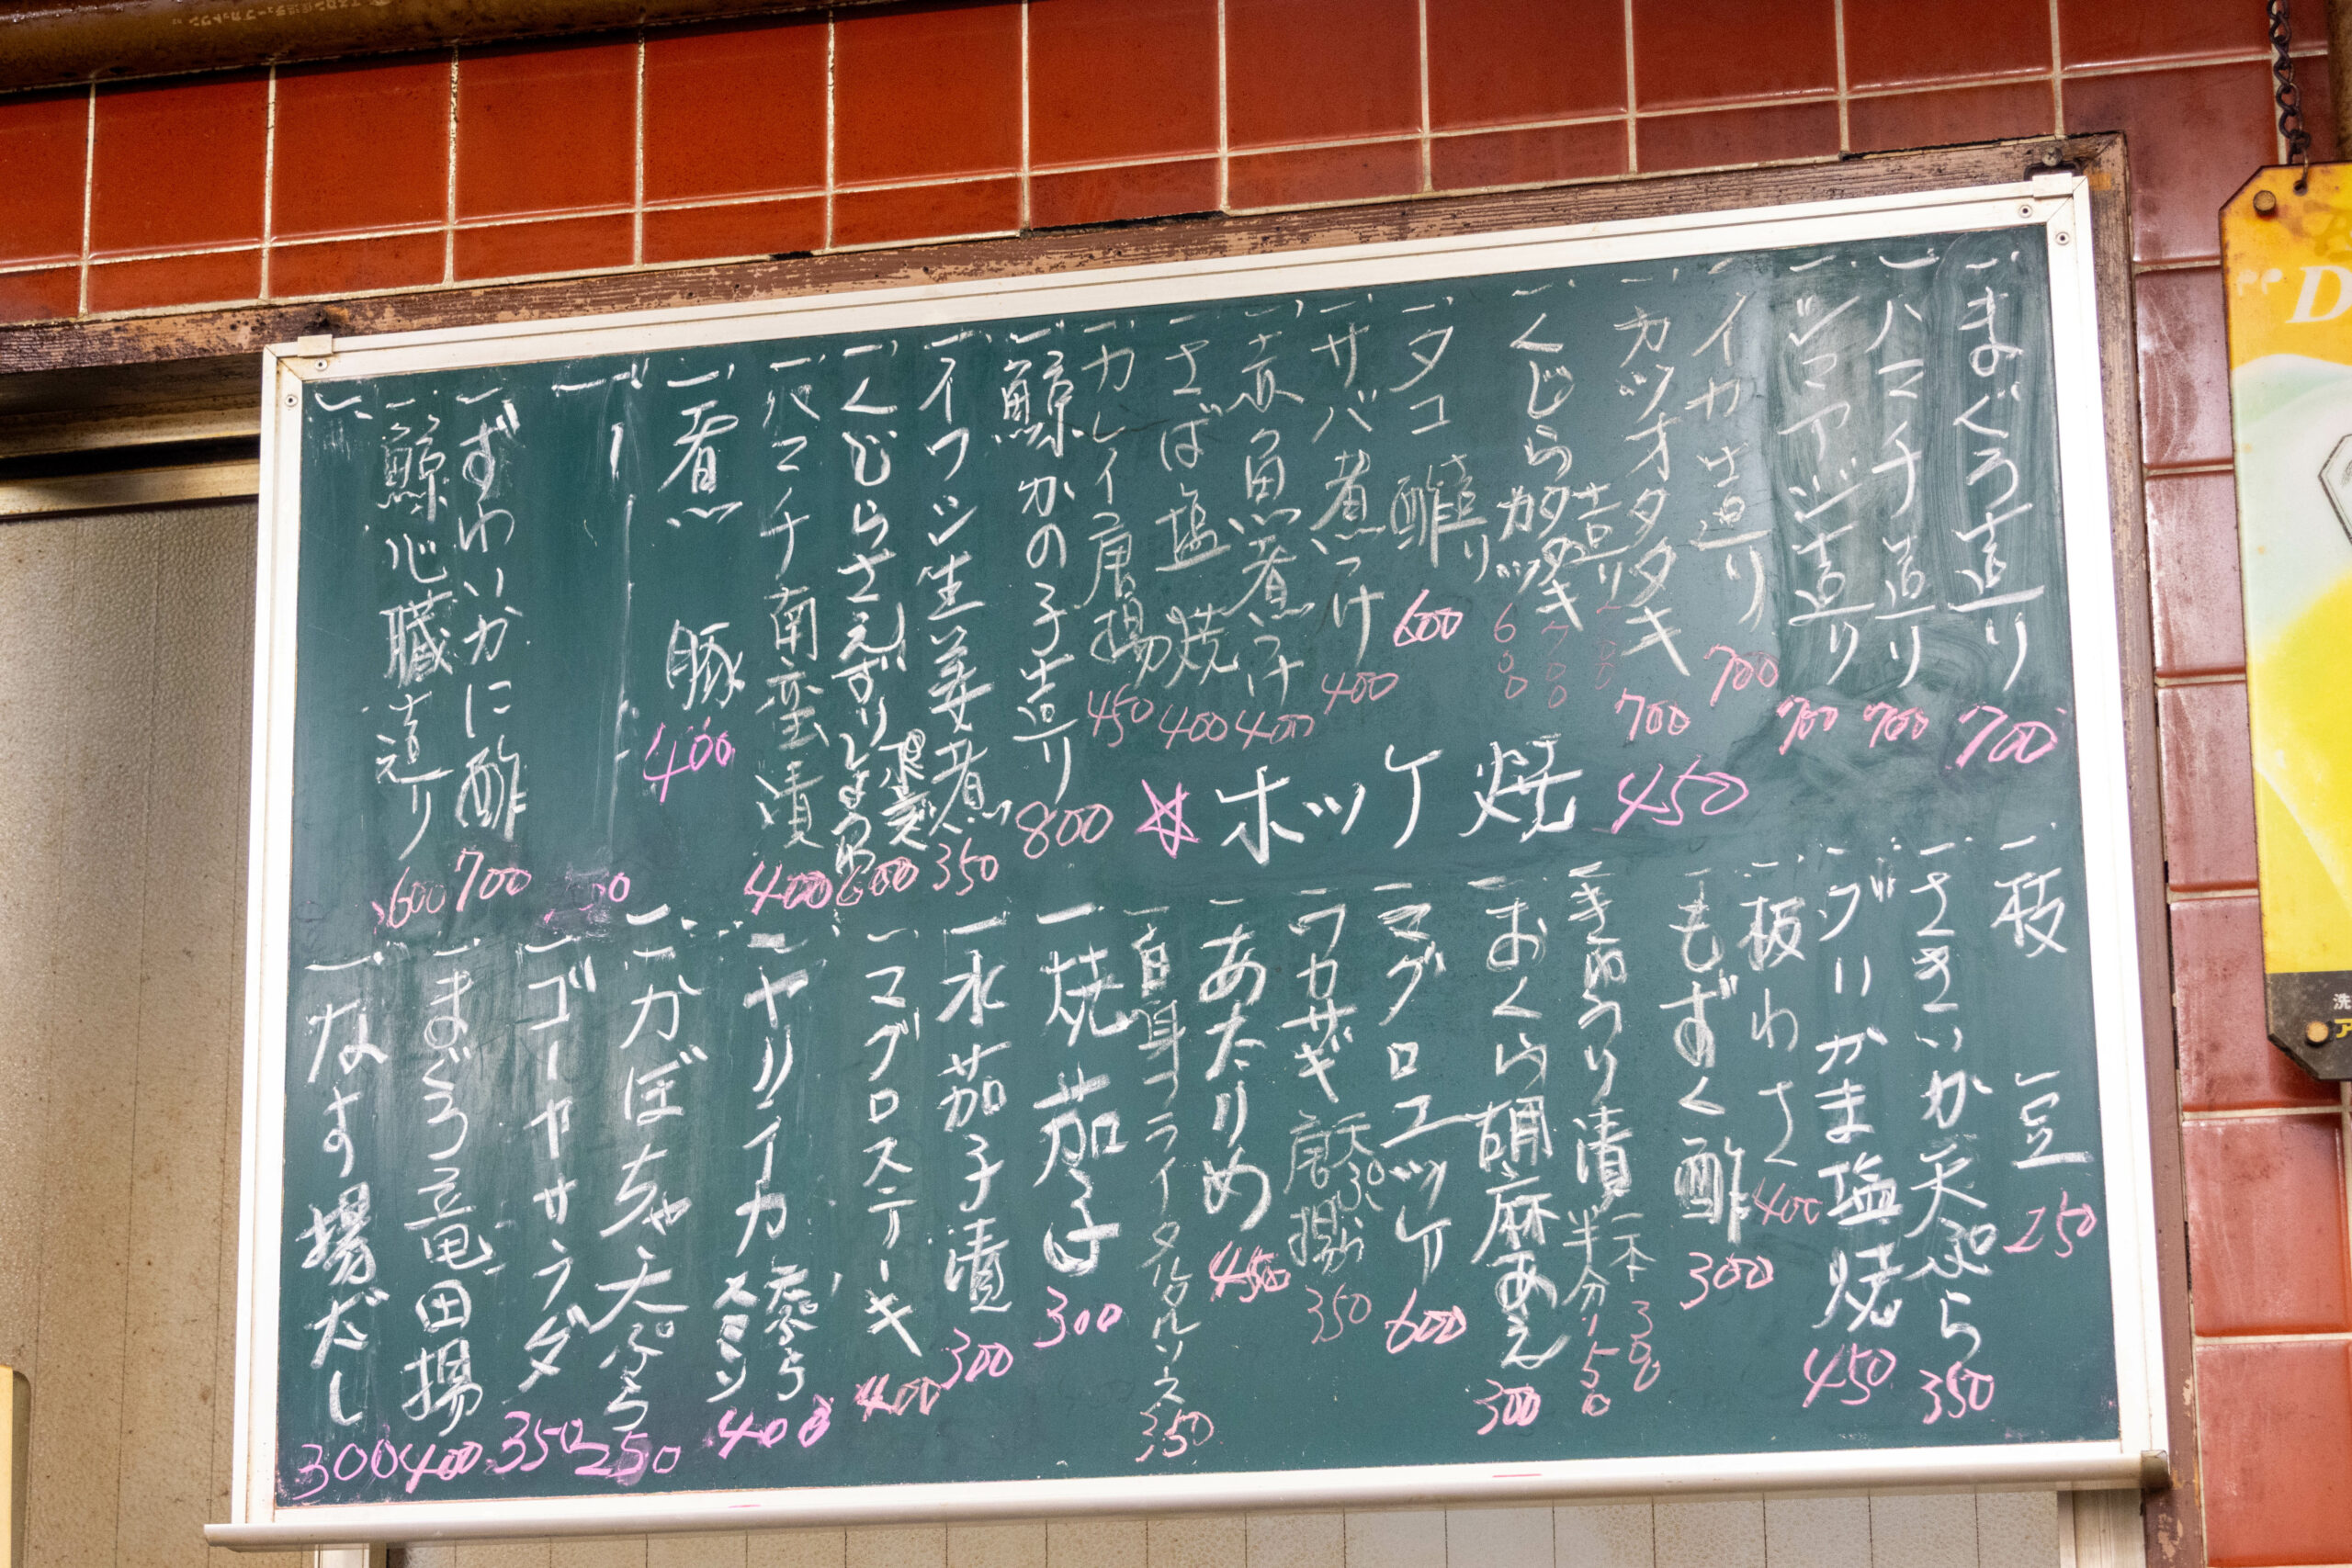 一、まぐろ造り 700
一、ハマチ造り 700
一、シマアジ造り 700
一、イカ造り 700
一、カツオタタキ 700
一、くじらカツ
造り
タタキ
700
600
一、タコ酢 600
一、サバ煮つけ 400
一、赤魚煮つけ 400
一、さば塩焼 400
一、カレイ唐揚 450
一、鯨かの子造り 800
一、イワシ生姜煮 350
一、くじらさえずり 600
一、ハマチ南蛮漬 400
一、煮豚 400
一、ずわいかに酢 700
一、鯨心臓造り 600
☆ホッケ焼 450
一、枝豆 250
一、さきいか天ぷら 350
一、ブリかま塩焼 450
一、板わさ 400
一、もずく酢 300
一、きゅうり漬 一本 300
半分 150
一、おくら胡麻あえ 300
一、マグロユッケ 600
一、ワカサギ 天ぷら
唐揚 350
一、あたりめ 450
一、白身フライタルタルソース 350
一、焼茄子 300
一、水茄子漬 300
一、マグロステーキ 400
一、ヤリイカ 天ぷら 400
一、かぼちゃ天ぷら 250
一、ゴーヤサラダ 350
一、まぐろ竜田揚 400
一、なす揚だし 300
D
洗
ア